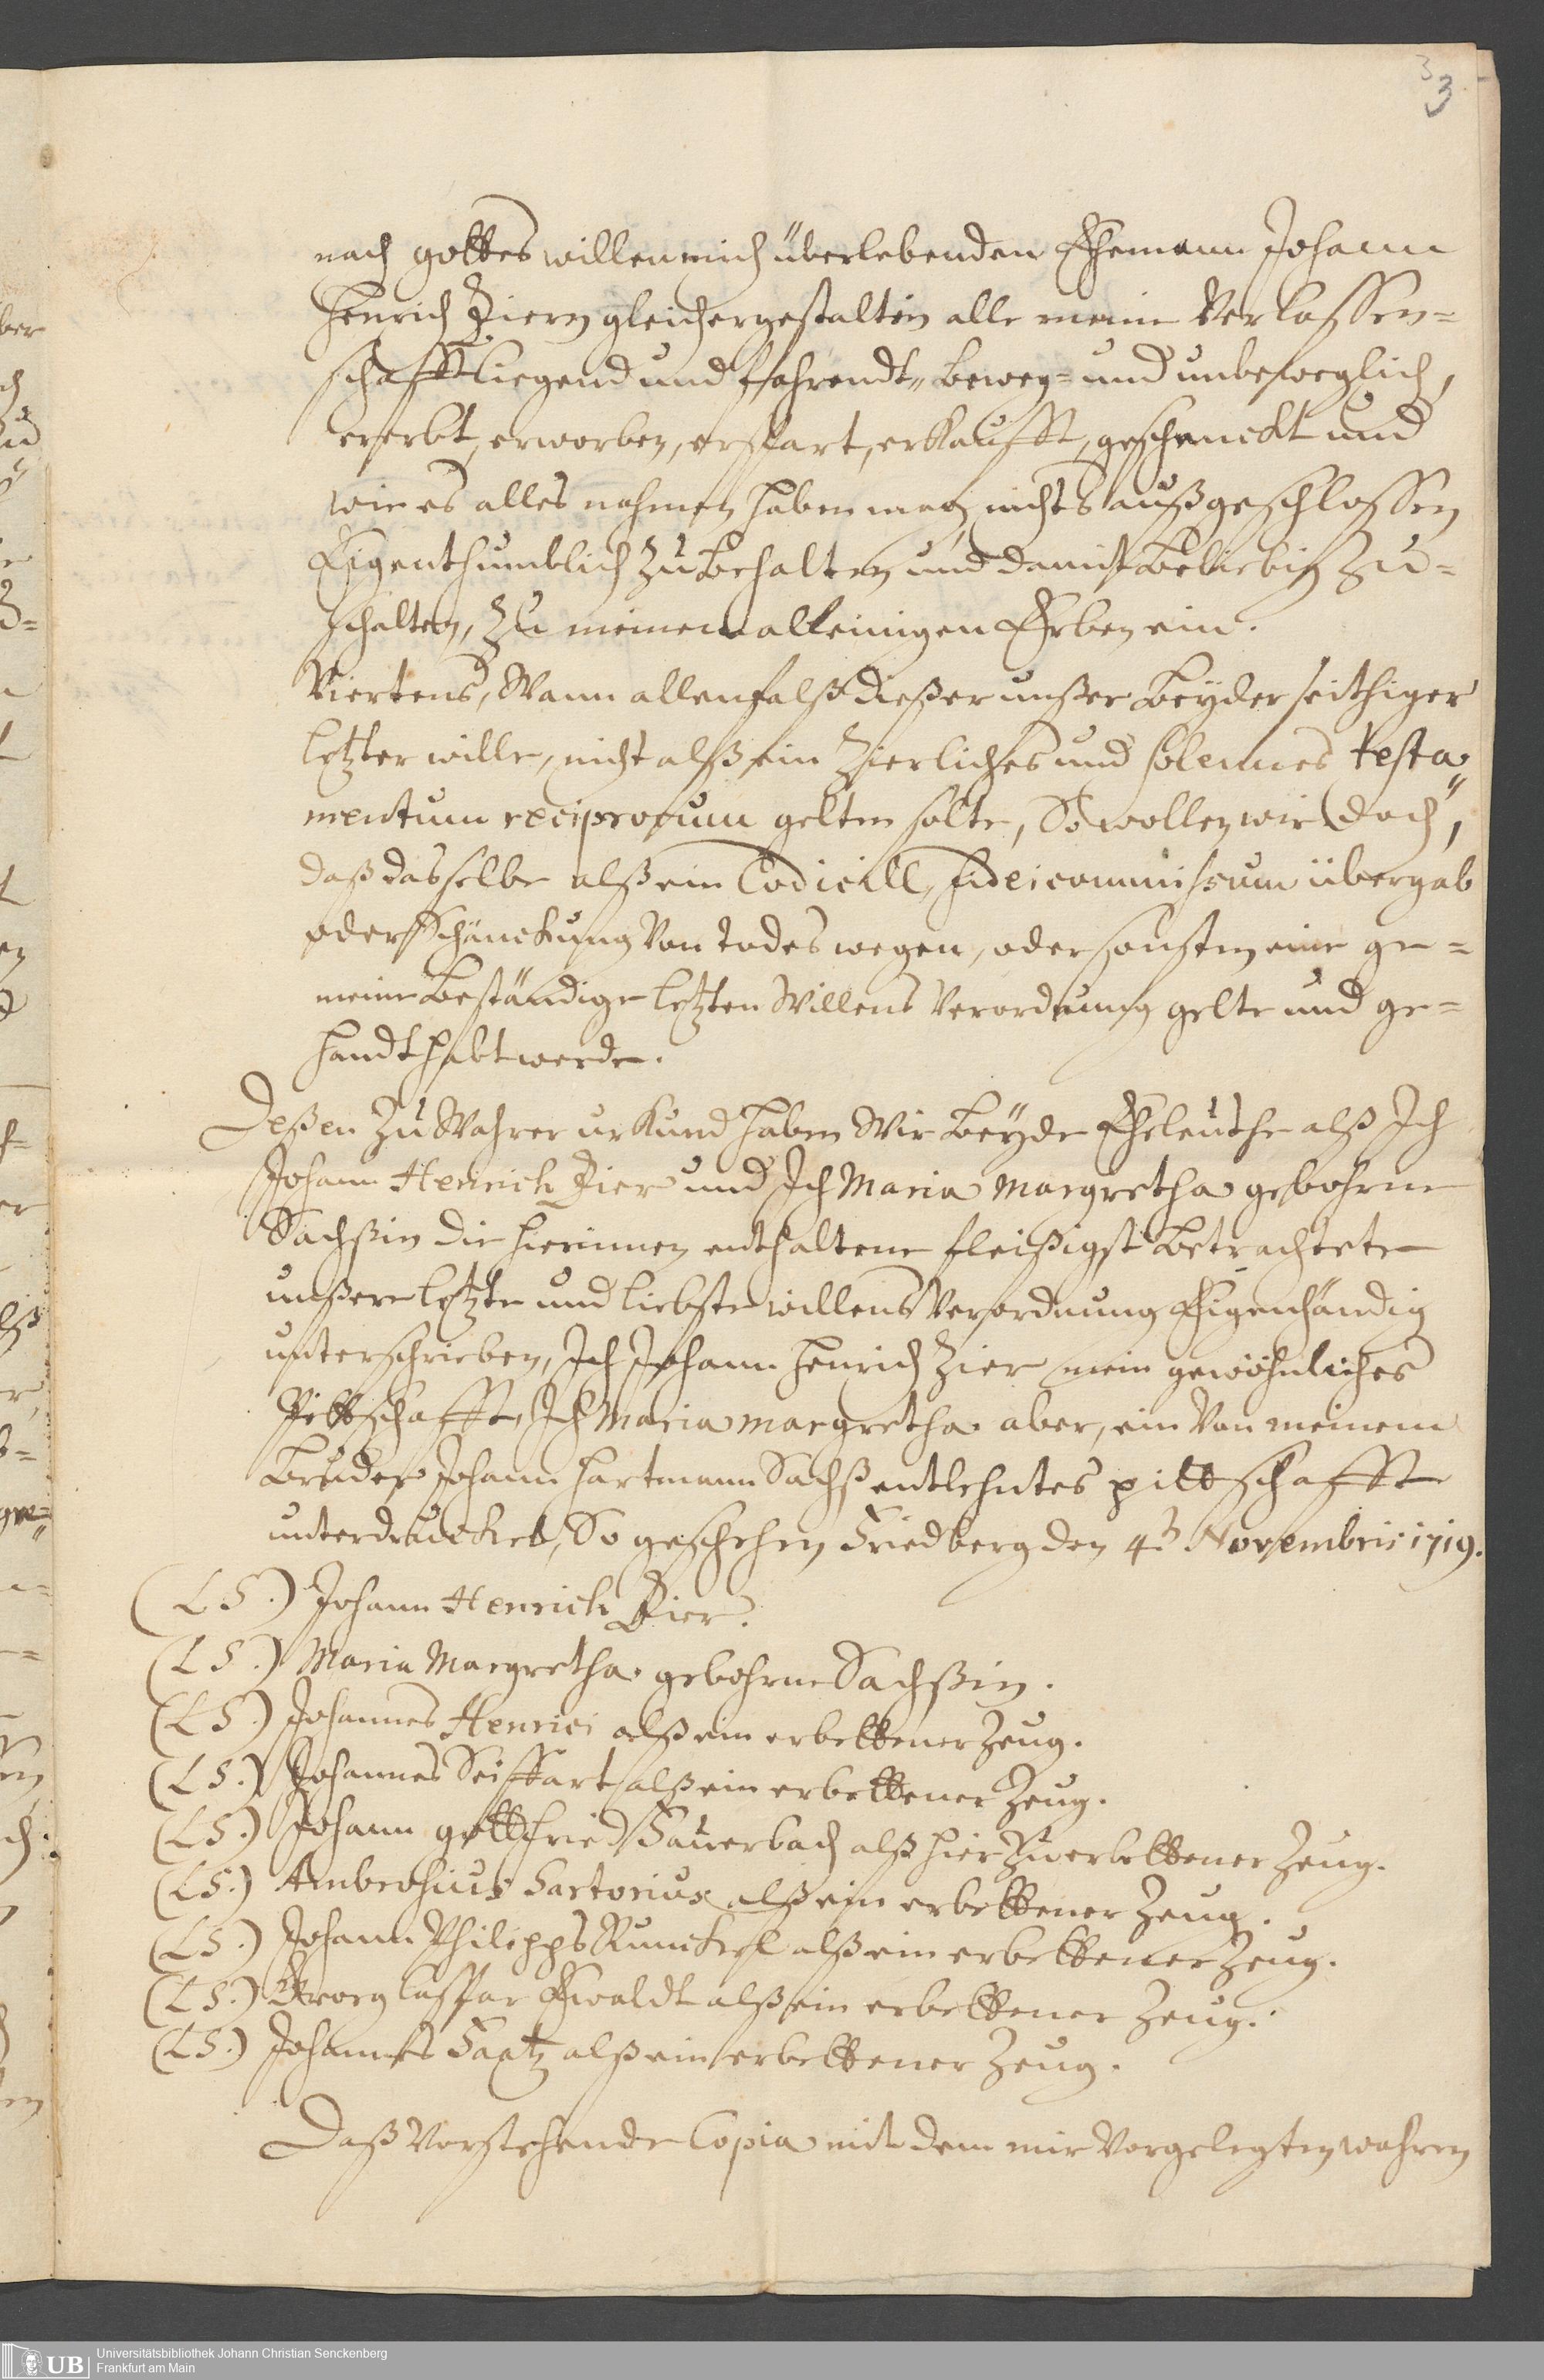 3
3
nach gottes willen mich überlebenden Ehemann Johann
Henrich Ziern gleichergestalten alle meine Verlassen=
schafft liegend und fahrendt, beweg= und unbeweglich,
ererbt, erworben, erspart, erkaufft, geschenckt und
wie es alles nahmen haben mag, nichts außgeschlossen
Eigenthumblich zu behalten und damit beliebig zu=
schalten, zu meinem alleinigen Erben ein.
Viertens, Wann allenfalß dießer unßer beyderseithiger
letzter wille, nicht alß ein zierliches und solennes testa„
mentum reciprocum gelten solte, So wollen wir doch,
daß dasselbe alß ein Codicill, fideicommissum übergab
oder Schänckung von todes wegen, oder sonsten eine ge=
meine beständige letzten Willens Verordnung gelte und ge=
handthabt werde.
Deßen zu Wahrer urkund haben Wir beyde Eheleuthe alß Ich
Johann Henrich Zier und Ich Maria Margretha gebohrne
Sachßin die hierinnen enthaltene fleißigst betrachtete
unßere letzte und liebste willens Verordnung Eigenhändig
unterschrieben, Ich Johann Henrich Zier mein gewöhnliches
Pittschafft, Ich Maria Margretha aber, ein von meinem
Bruder Johann Hartmann Sachß entlehntes pittschafft
unterdrucket, So geschehen Friedberg den 4t Novembris 1719.
(L S.) Johann Henrich Zier.
(L S.) Maria Margretha gebohrne Sachßin.
(L S.) Johannes Henrici alß ein erbettener Zeug.
(L S.) Johannes Seiffart alß ein erbettener Zeug.
(L S.) Johann gottfried Saüerbach alß hierzu erbettener Zeug.
(L S.) Ambrosius Sartorius alß ein erbettener Zeug.
(L S.) Johann Philipps Runckel alß ein erbettener Zeug.
(L S.) Georg Caspar Ewaldt alß ein erbettener Zeug.
(L S.) Johannes alß ein erbettener Zeug.
Daß Vorstehende Copia mit dem mir Vorgelegten wahren
UB
Universitätsbibliothek Johann Christian Senckenberg
Frankfurt am Main